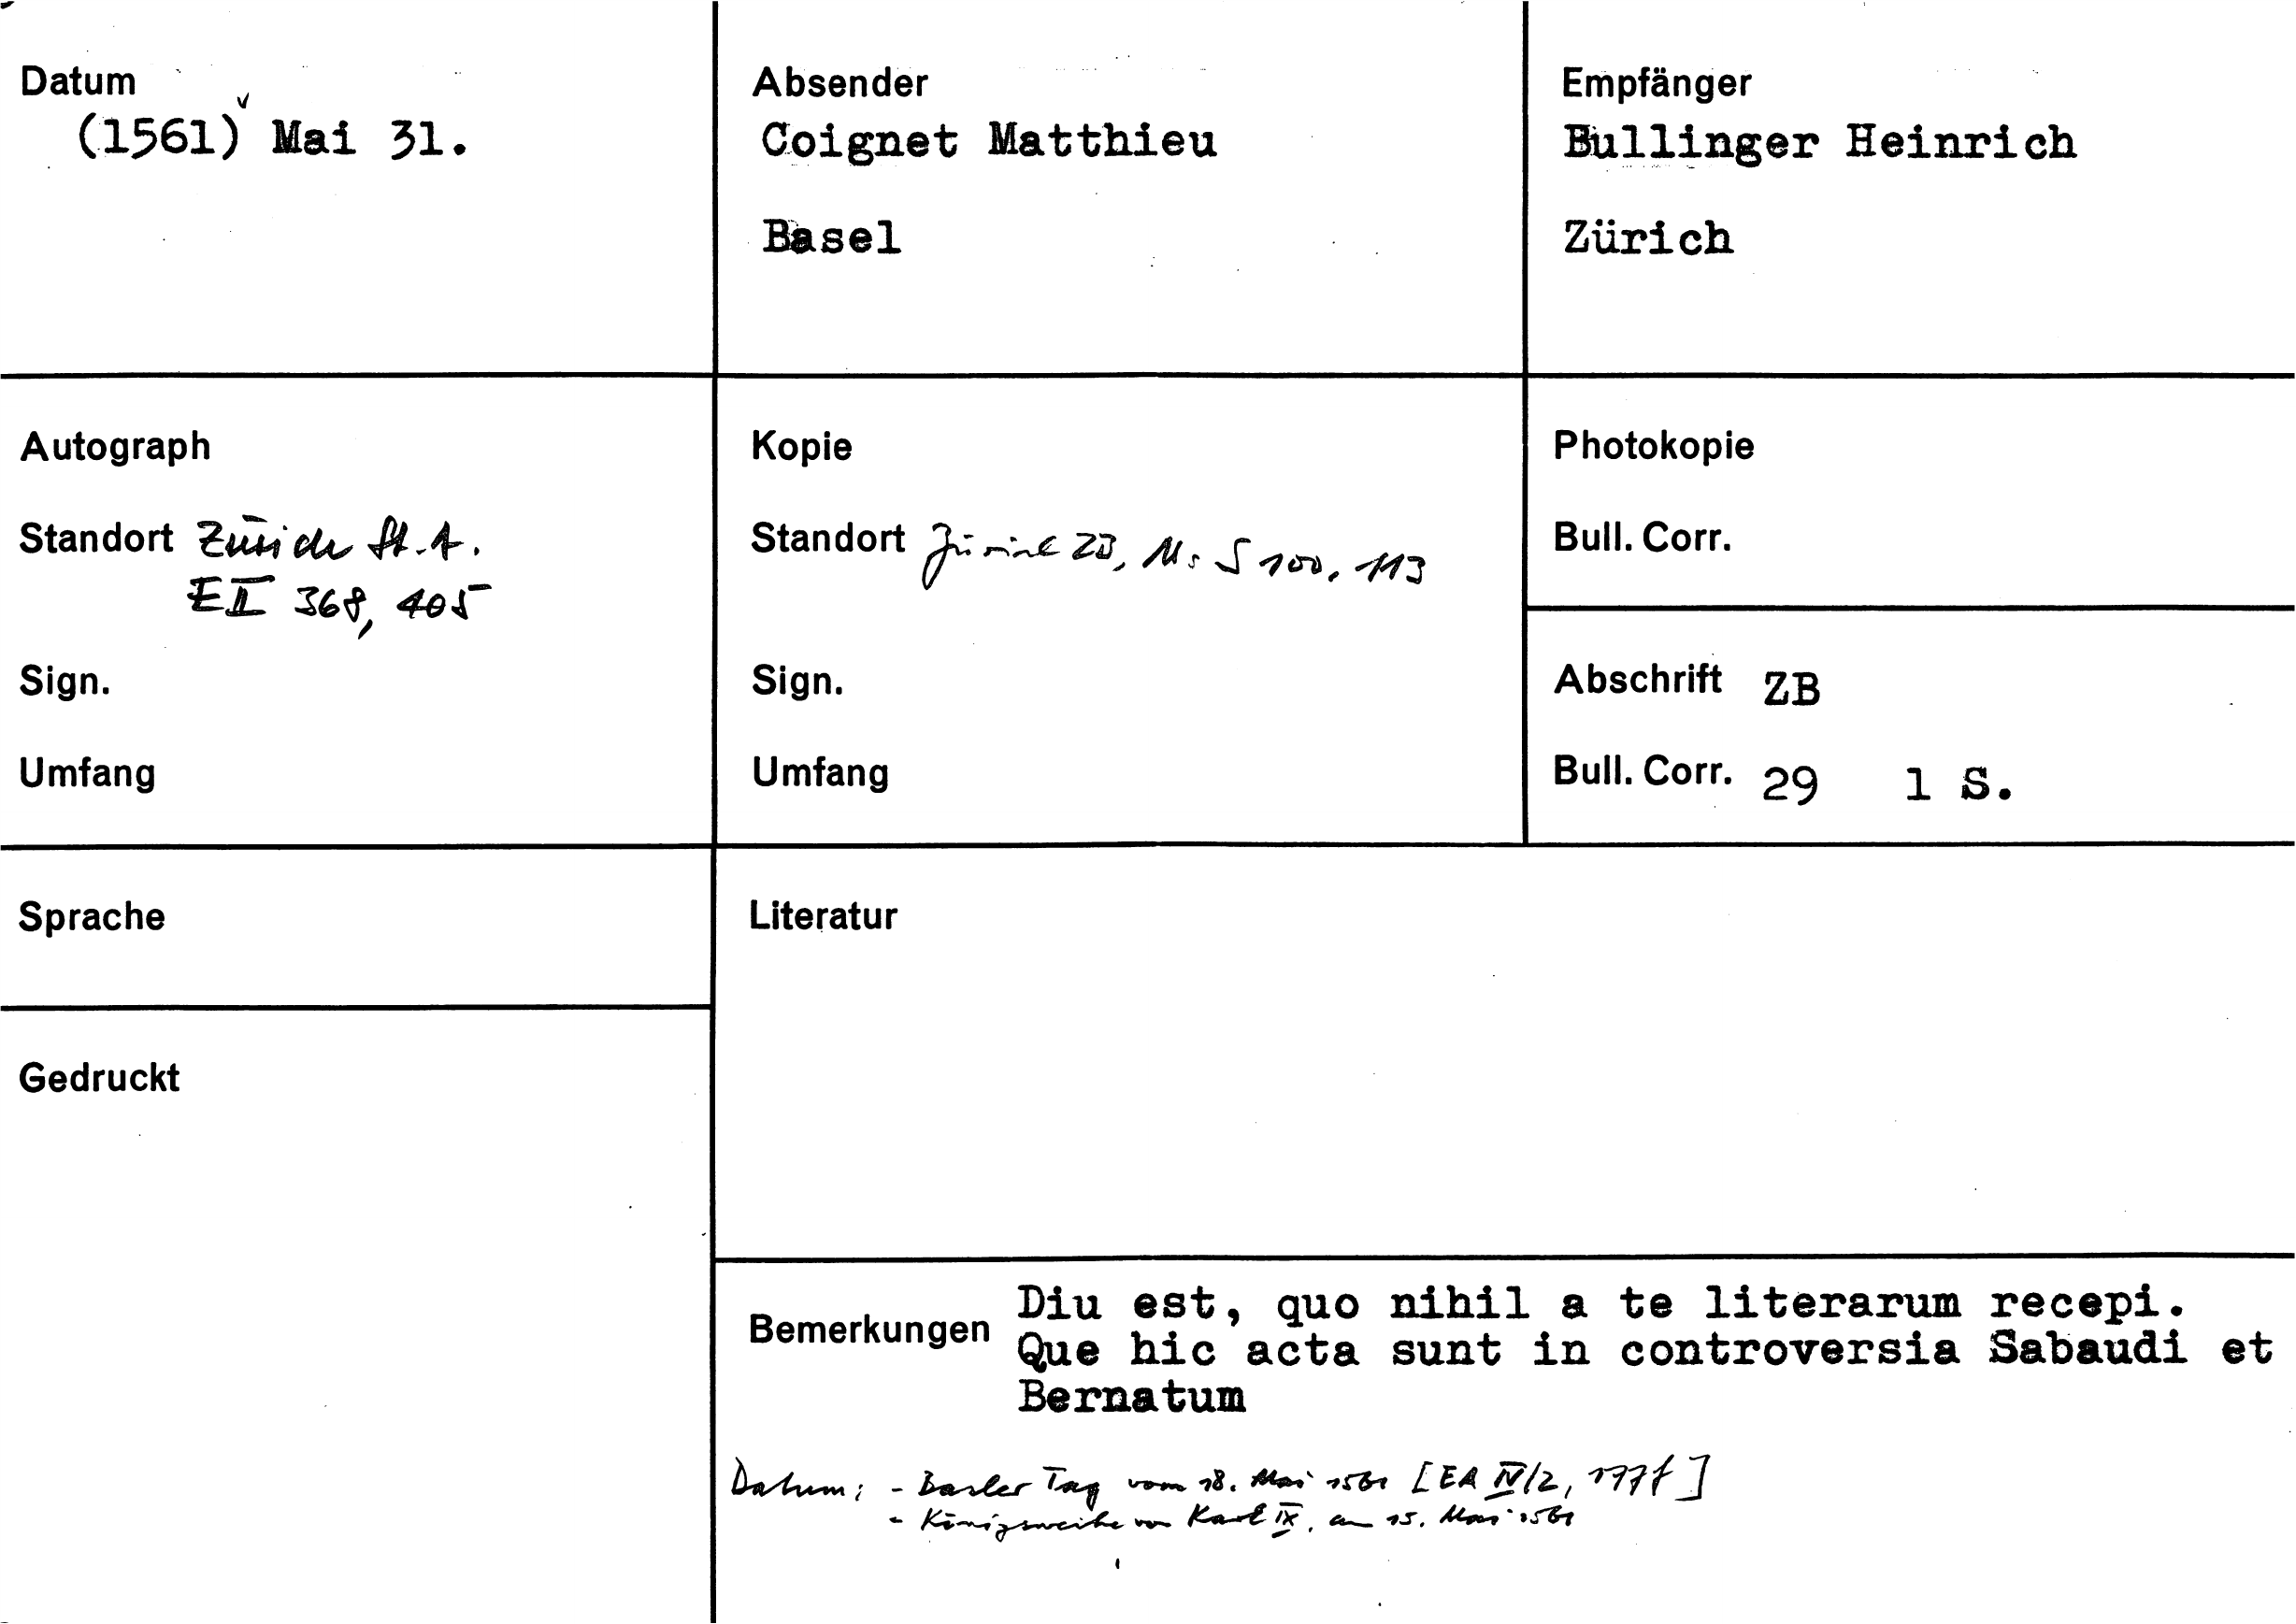 Datum
(1561) Mai 31.
Absender
Coignet Matthieu
Basel
Empfänger
Bullinger Heinrich
Zürich
Autograph
Standort Zürich St.A.
E II 368, 405
Sign.
Umfang
Kopie
Standort Zürich ZB, Ms S 100, 113
Sign.
Umfang
Photokopie
Bull. Corr.
Abschrift ZB
Bull. Corr. 29 1 S.
Sprache
Gedruckt
Literatur
Bemerkungen
Diu est, quo nihil a te literarum recepi.
Que hic acta sunt in controversia Sabaudi et
Bernatum
Datum: - Basler Tag vom 18. Mai 1561 [EA IV/2, 177f]
- Königsweihe von Karl IX. am 15. Mai 1561